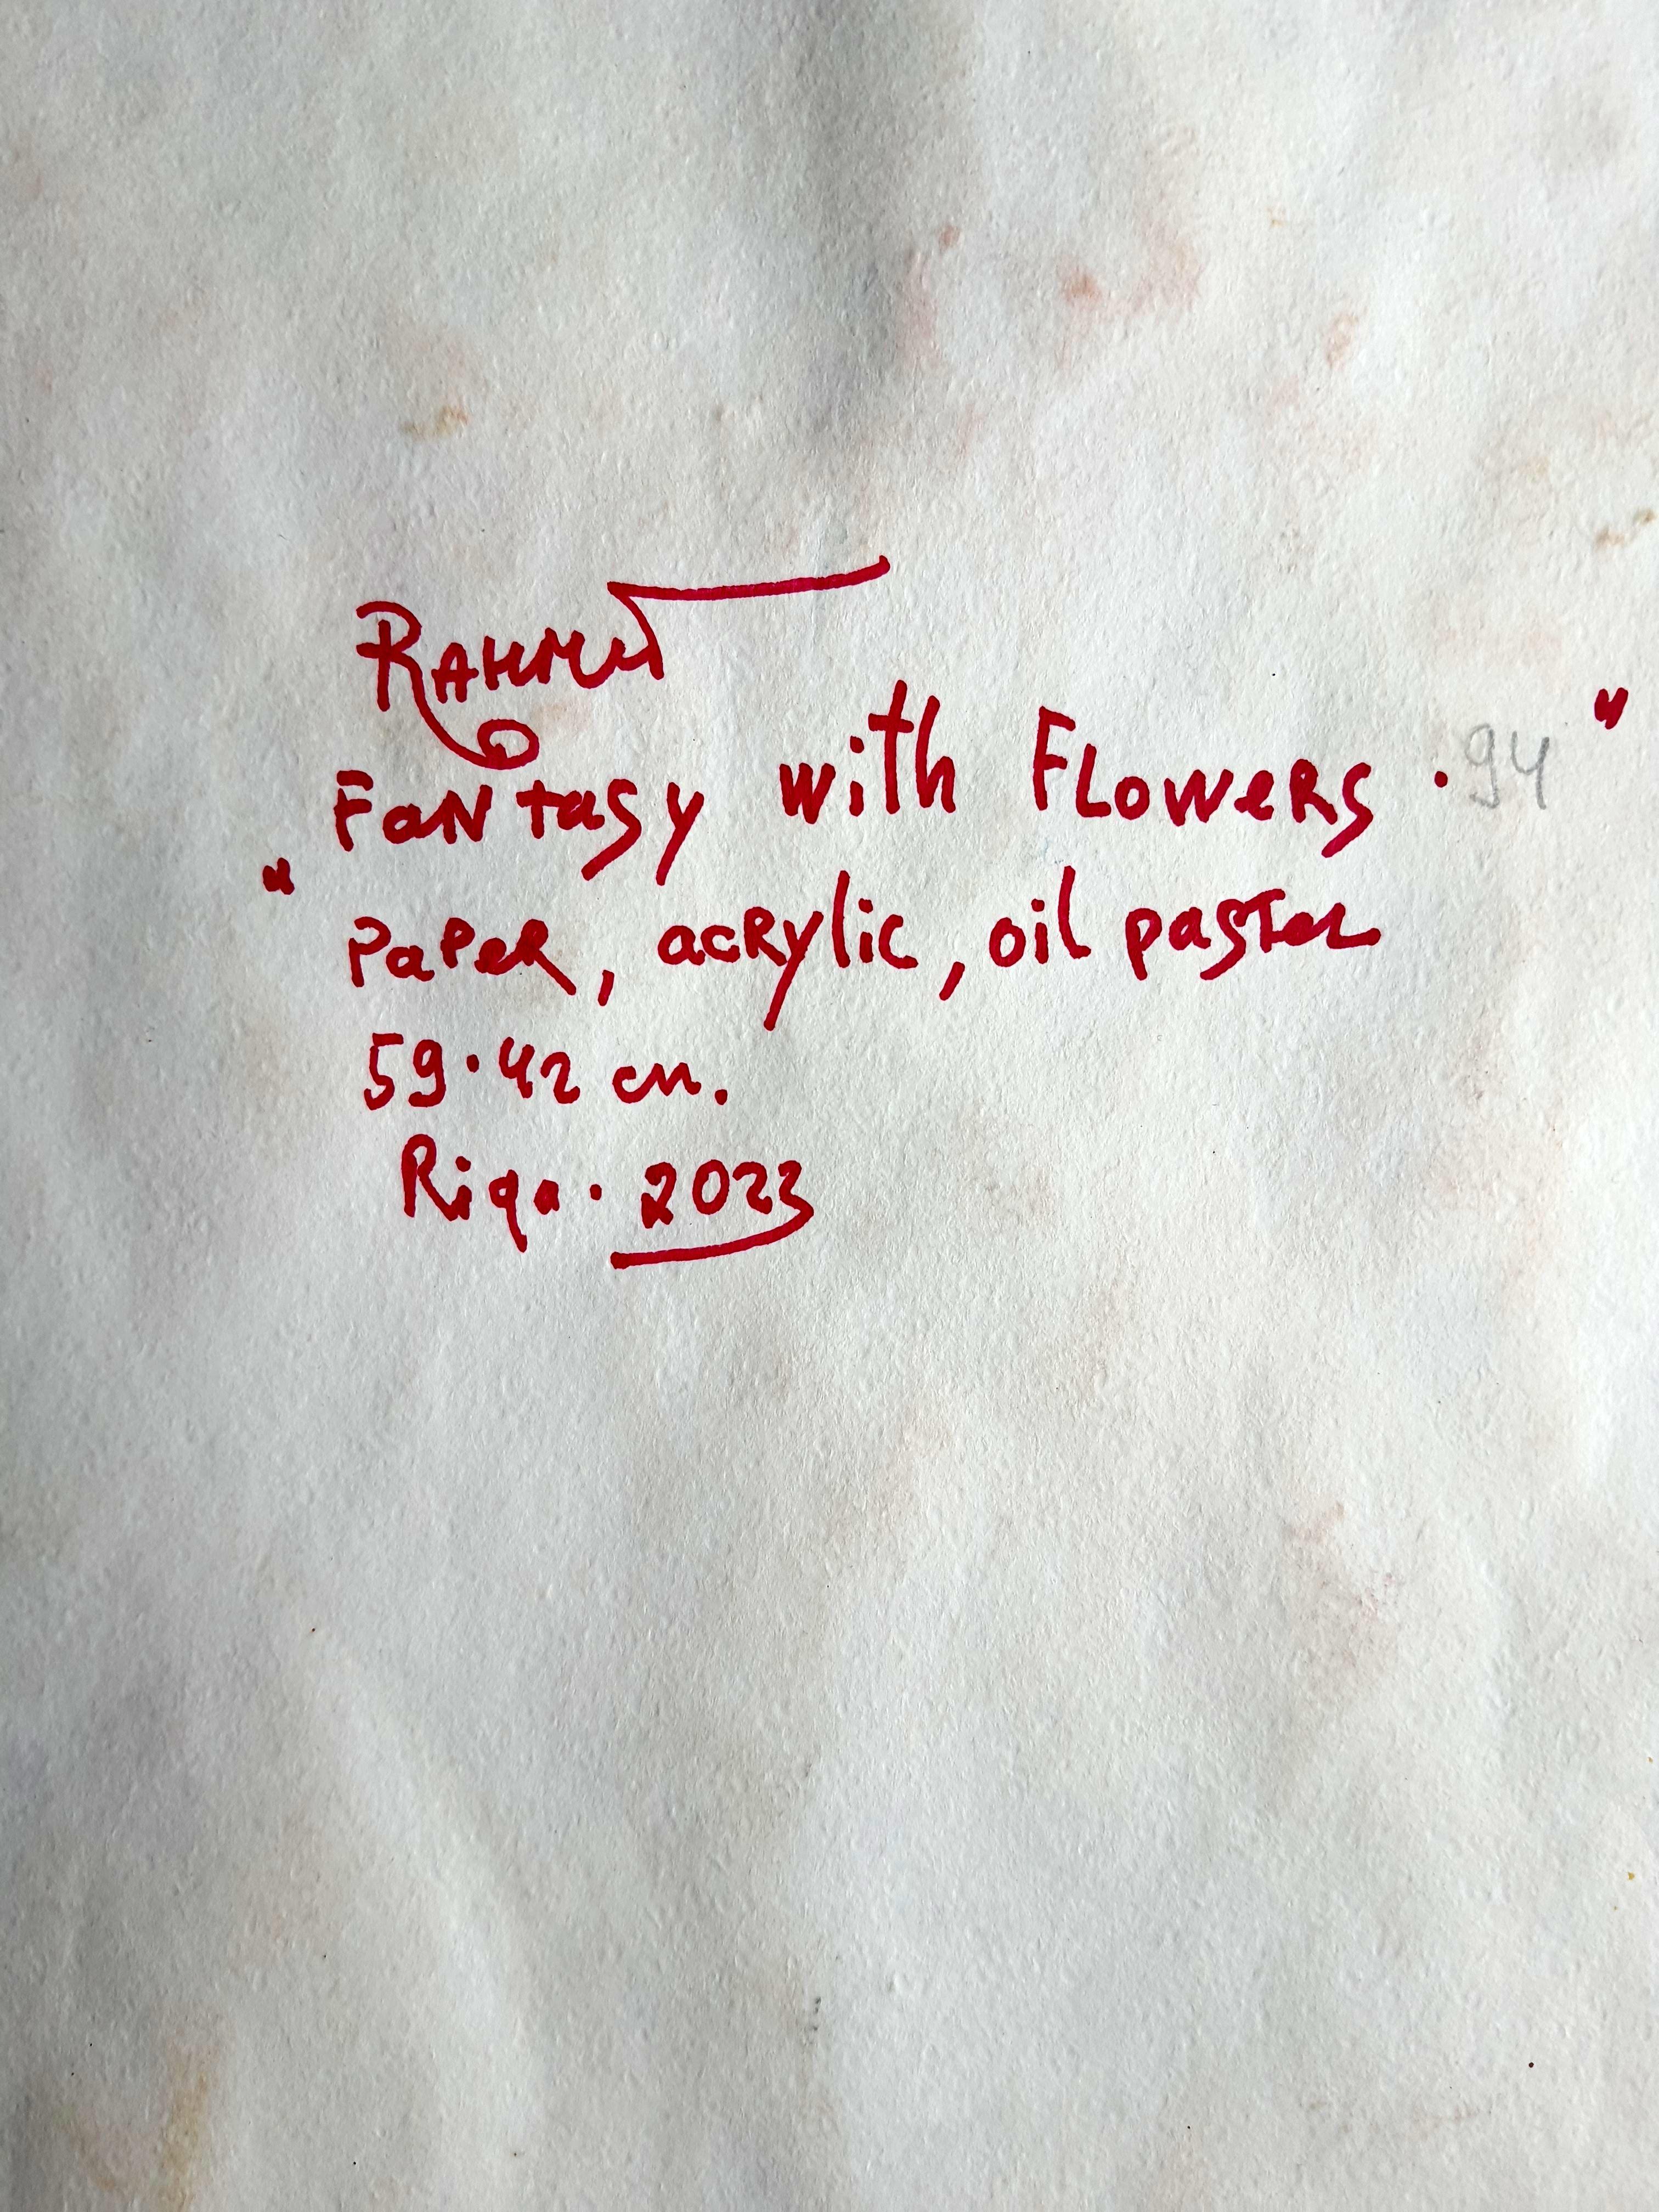 RAHMET
"Fantasy with Flowers · 94"
Paper, acrylic, oil pastel
59·42 cm.
Riga · 2023